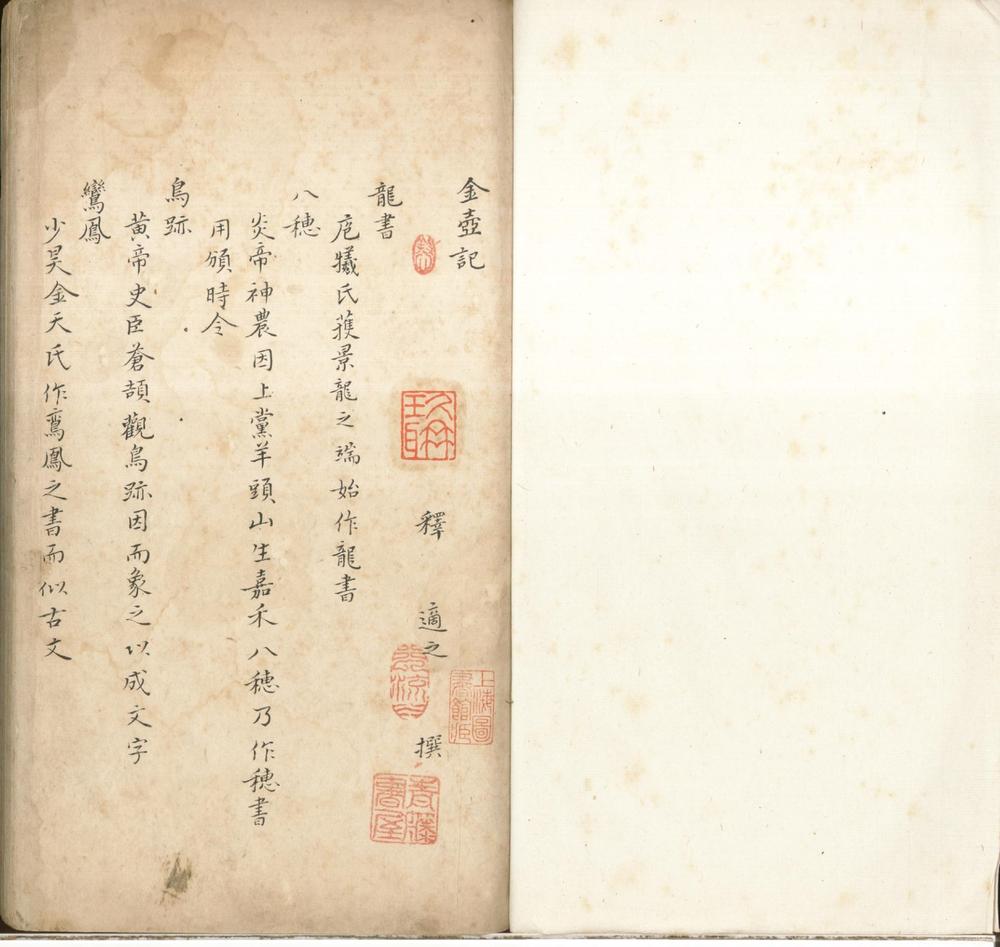 金壺記
釋 適之 撰
龍書
庖犧氏獲景龍之端始作龍書
八穗
炎帝神農因上黨羊頭山生嘉禾八穗乃作穗書
用頒時令
鳥跡
黃帝史臣蒼頡觀鳥跡因而象之以成文字
鸞鳳
少昊金天氏作鸞鳳之書而似古文
上海圖書館藏